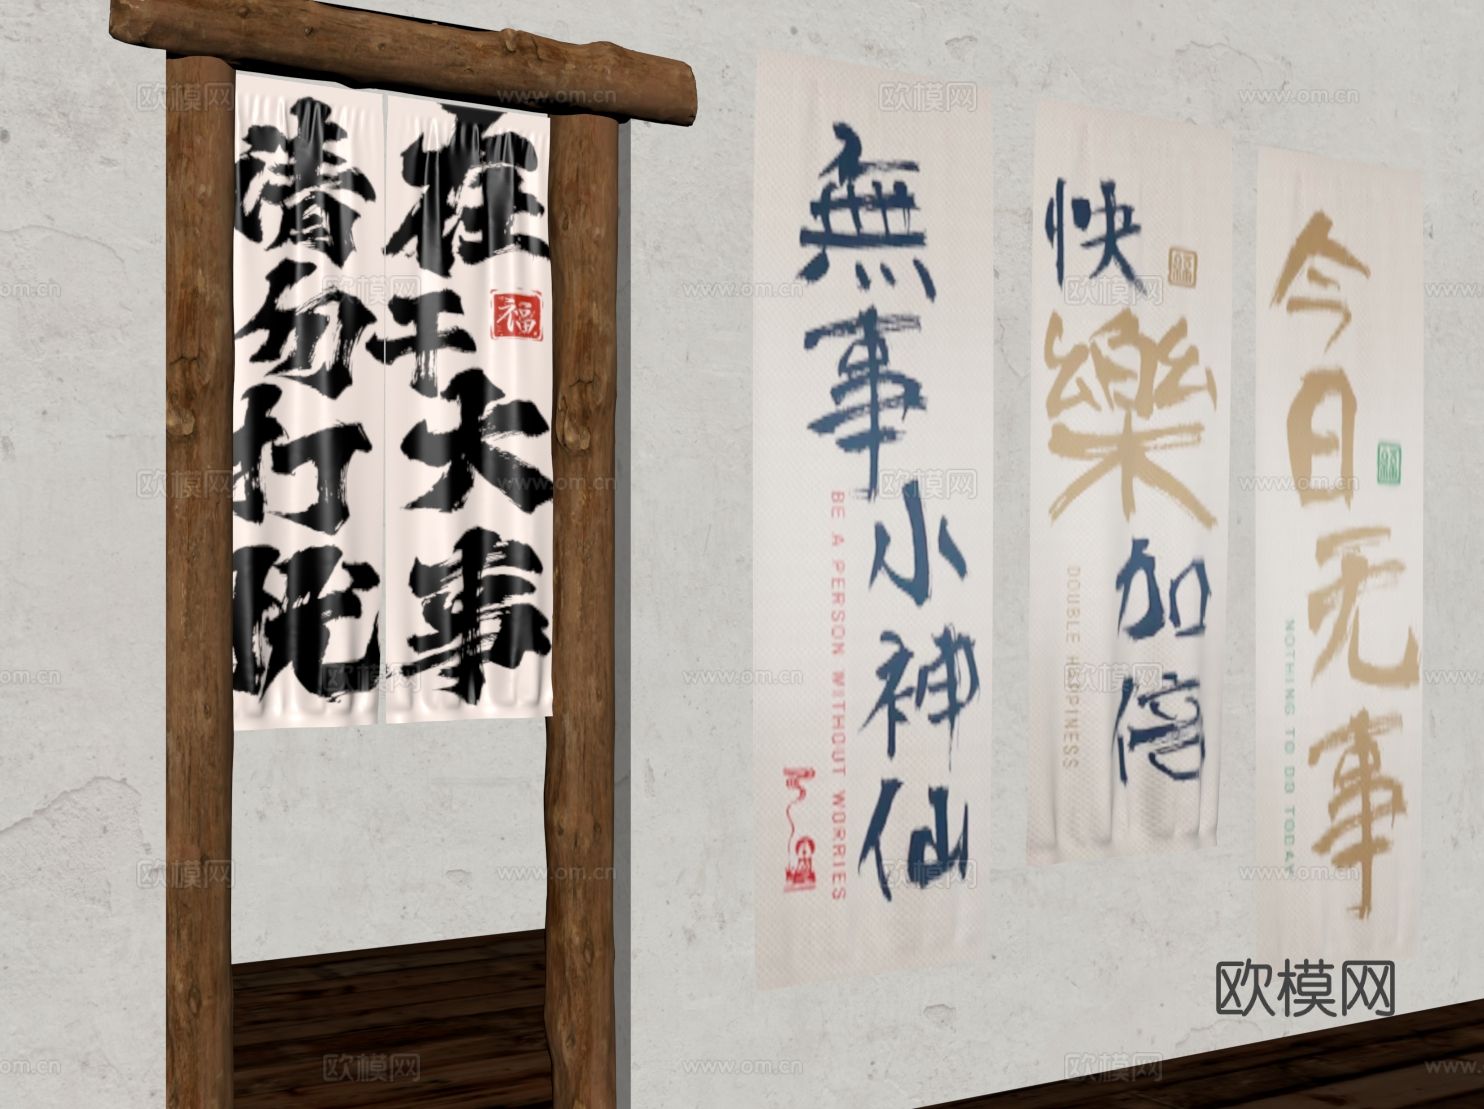 在干大事
请勿打扰
福
無事小神仙
BE A PERSON WITHOUT WORRIES
快樂加倍
DOUBLE HAPPINESS
今日无事
NOTHING TO DO TODAY
欧模网
www.om.cn